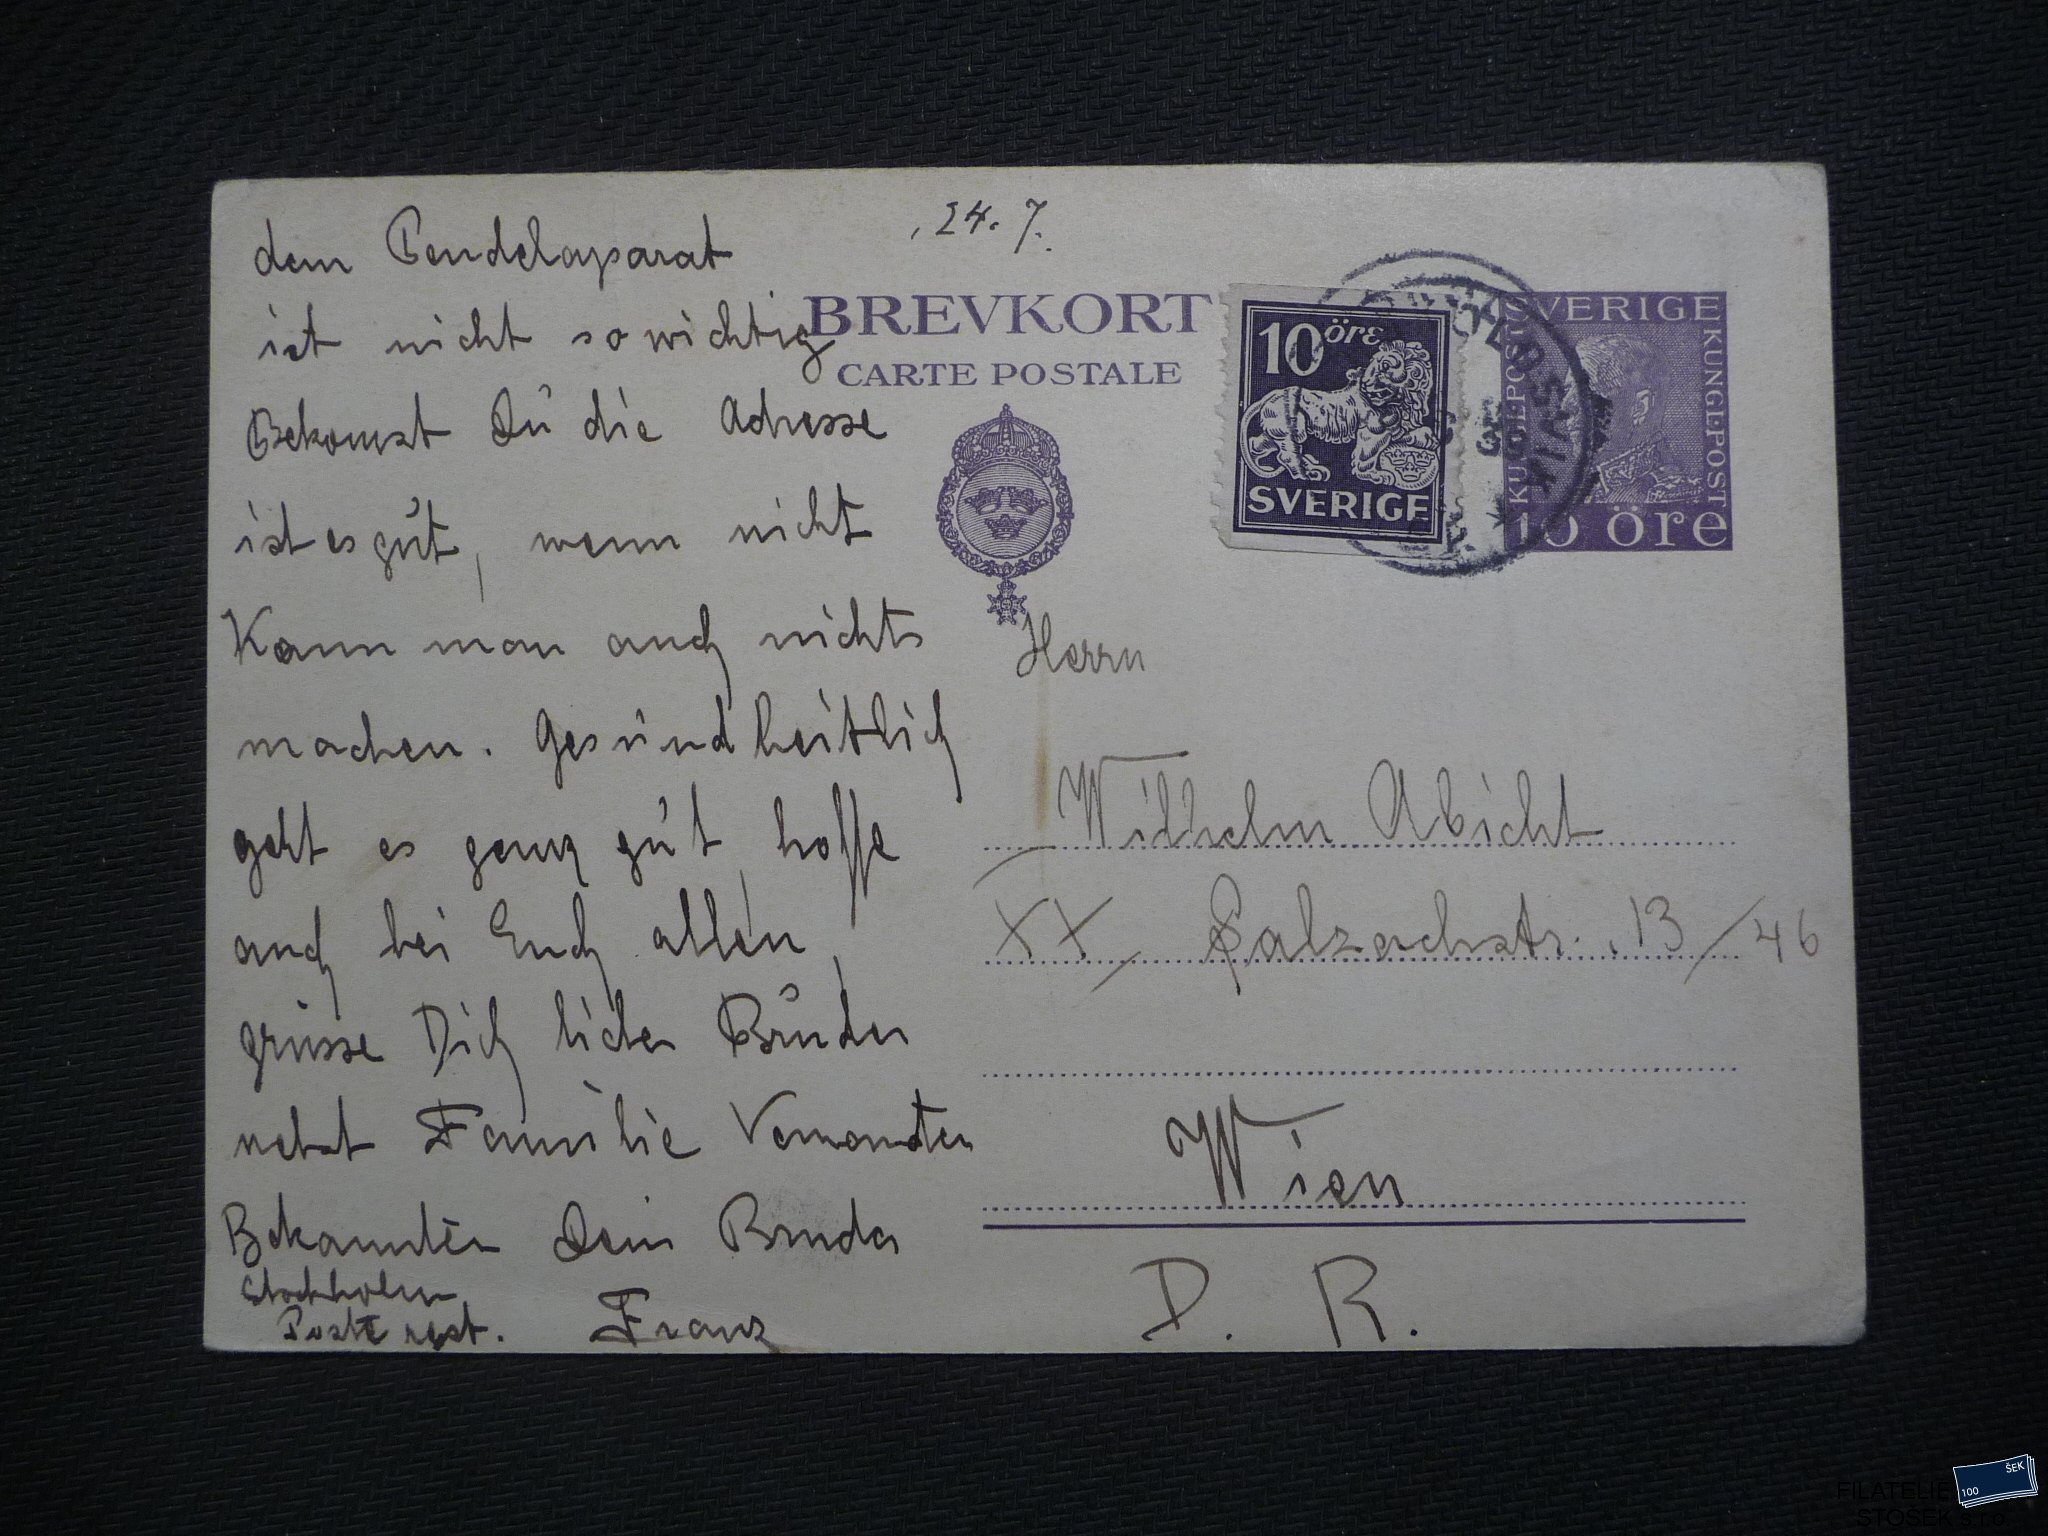 24. 7.
dem Pendelaparat
ist nicht so wichtig
Bekomst Dŭ die Adresse
ist es gŭt, wenn nicht
Kann man auch nichts
machen. Gesŭndheitlich
geht es ganz gŭt, hoffe
auch bei Euch allen,
grüsse Dich lieber Brŭder
nebst Familie Verwandten
Bekannten Dein Bruder
Stockholm
Poste rest. Franz
BREVKORT
CARTE POSTALE
10 öre
SVERIGE
SVERIGE
KUNGL. POST
KUNGL. POST
10 öre
Herrn
Wilhelm Abicht
XX, Salzachstr. 13/46
Wien
D. R.
FILATELIE
STOSEK s.r.o.
100
ŠEK